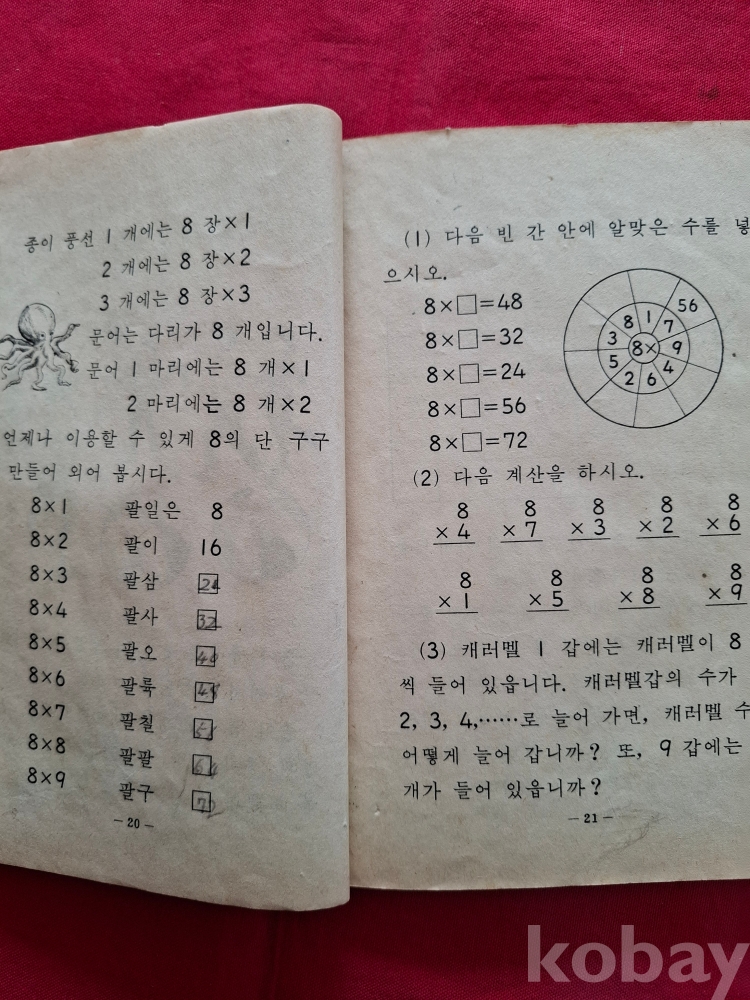 종이 풍선 1 개에는 8 장×1
2 개에는 8 장×2
3 개에는 8 장×3
문어는 다리가 8 개입니다.
문어 1 마리에는 8 개×1
2 마리에는 8 개×2
언제나 이용할 수 있게 8의 단 구구
만들어 외어 봅시다.
8×1 팔일은 8
8×2 팔이 16
8×3 팔삼 24
8×4 팔사 32
8×5 팔오 40
8×6 팔륙 48
8×7 팔칠
8×8 팔팔 64
8×9 팔구
－20－
(1) 다음 빈 간 안에 알맞은 수를 넣
으시오.
8×□=48
8×□=32
8×□=24
8×□=56
8×□=72
56
8 1 7
3 8× 9
5 4
2 6
(2) 다음 계산을 하시오.
8 8 8 8 8
×4 ×7 ×3 ×2 ×6
8 8 8 8
×1 ×5 ×8 ×9
(3) 캐러멜 1 갑에는 캐러멜이 8
씩 들어 있읍니다. 캐러멜갑의 수가
2, 3, 4,……로 늘어 가면, 캐러멜 수
어떻게 늘어 갑니까? 또, 9 갑에는
개가 들어 있읍니까?
－21－
kobay